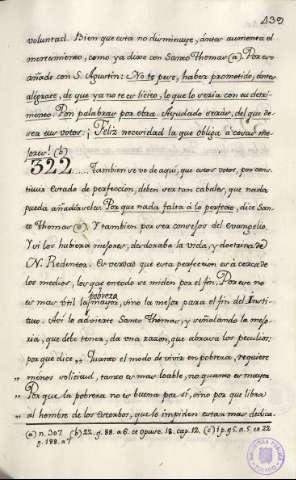 439
voluntad. Bien que esta no disminuye, ántes aumenta el
merecimiento, como ya dixe con Santo Thomas (a). Por eso
añade con S. Agustin: No te pese, haber prometido, ántes
alégrate, de que ya no te es lícito, lo que lo sería con tu detri-
mento. Pon palabras por obra. Ayudado serás, del que de-
sea tus votos. ¡Feliz necesidad la que obliga à cosas me-
jores! (b)
322....Tambien se vé de aquí, que estos votos, por cons-
tituir estado de perfeccion, deben ser tan cabales, que nada
pueda añadírseles. Por que nada falta à lo perfecto, dice San-
to Thomas (c). Y tambien por ser consejos del evangelio.
Y si los hubiera mejores, desdoraba la vida, y doctrina de
N. Redentor. Es verdad que esta perfeccion es à cerca de
los medios, los que en todo se miden por el fin. Por eso no
es mas util la mayor pobreza, sino la mejor para el fin del Insti-
tuto. Así lo advierte Santo Thomas, y señalando la mejo-
ria, que debe tener, da una razon, que abraza los peculios;
por que dice „ Quanto el modo de vivir en pobreza, requiere
„ menos solicitud, tanto es mas loable, no quanto es mayor.
„ Por que la pobreza no es buena por sí, sino por que libra
al hombre de los estorbos, que le impiden estar mas dedica-
(a) n. 307. (b) 22. q. 88. a 6. et opusc. 18. cap. 12. (c) 1 p. q. 5. a. 5. et 22
q. 188. a 7